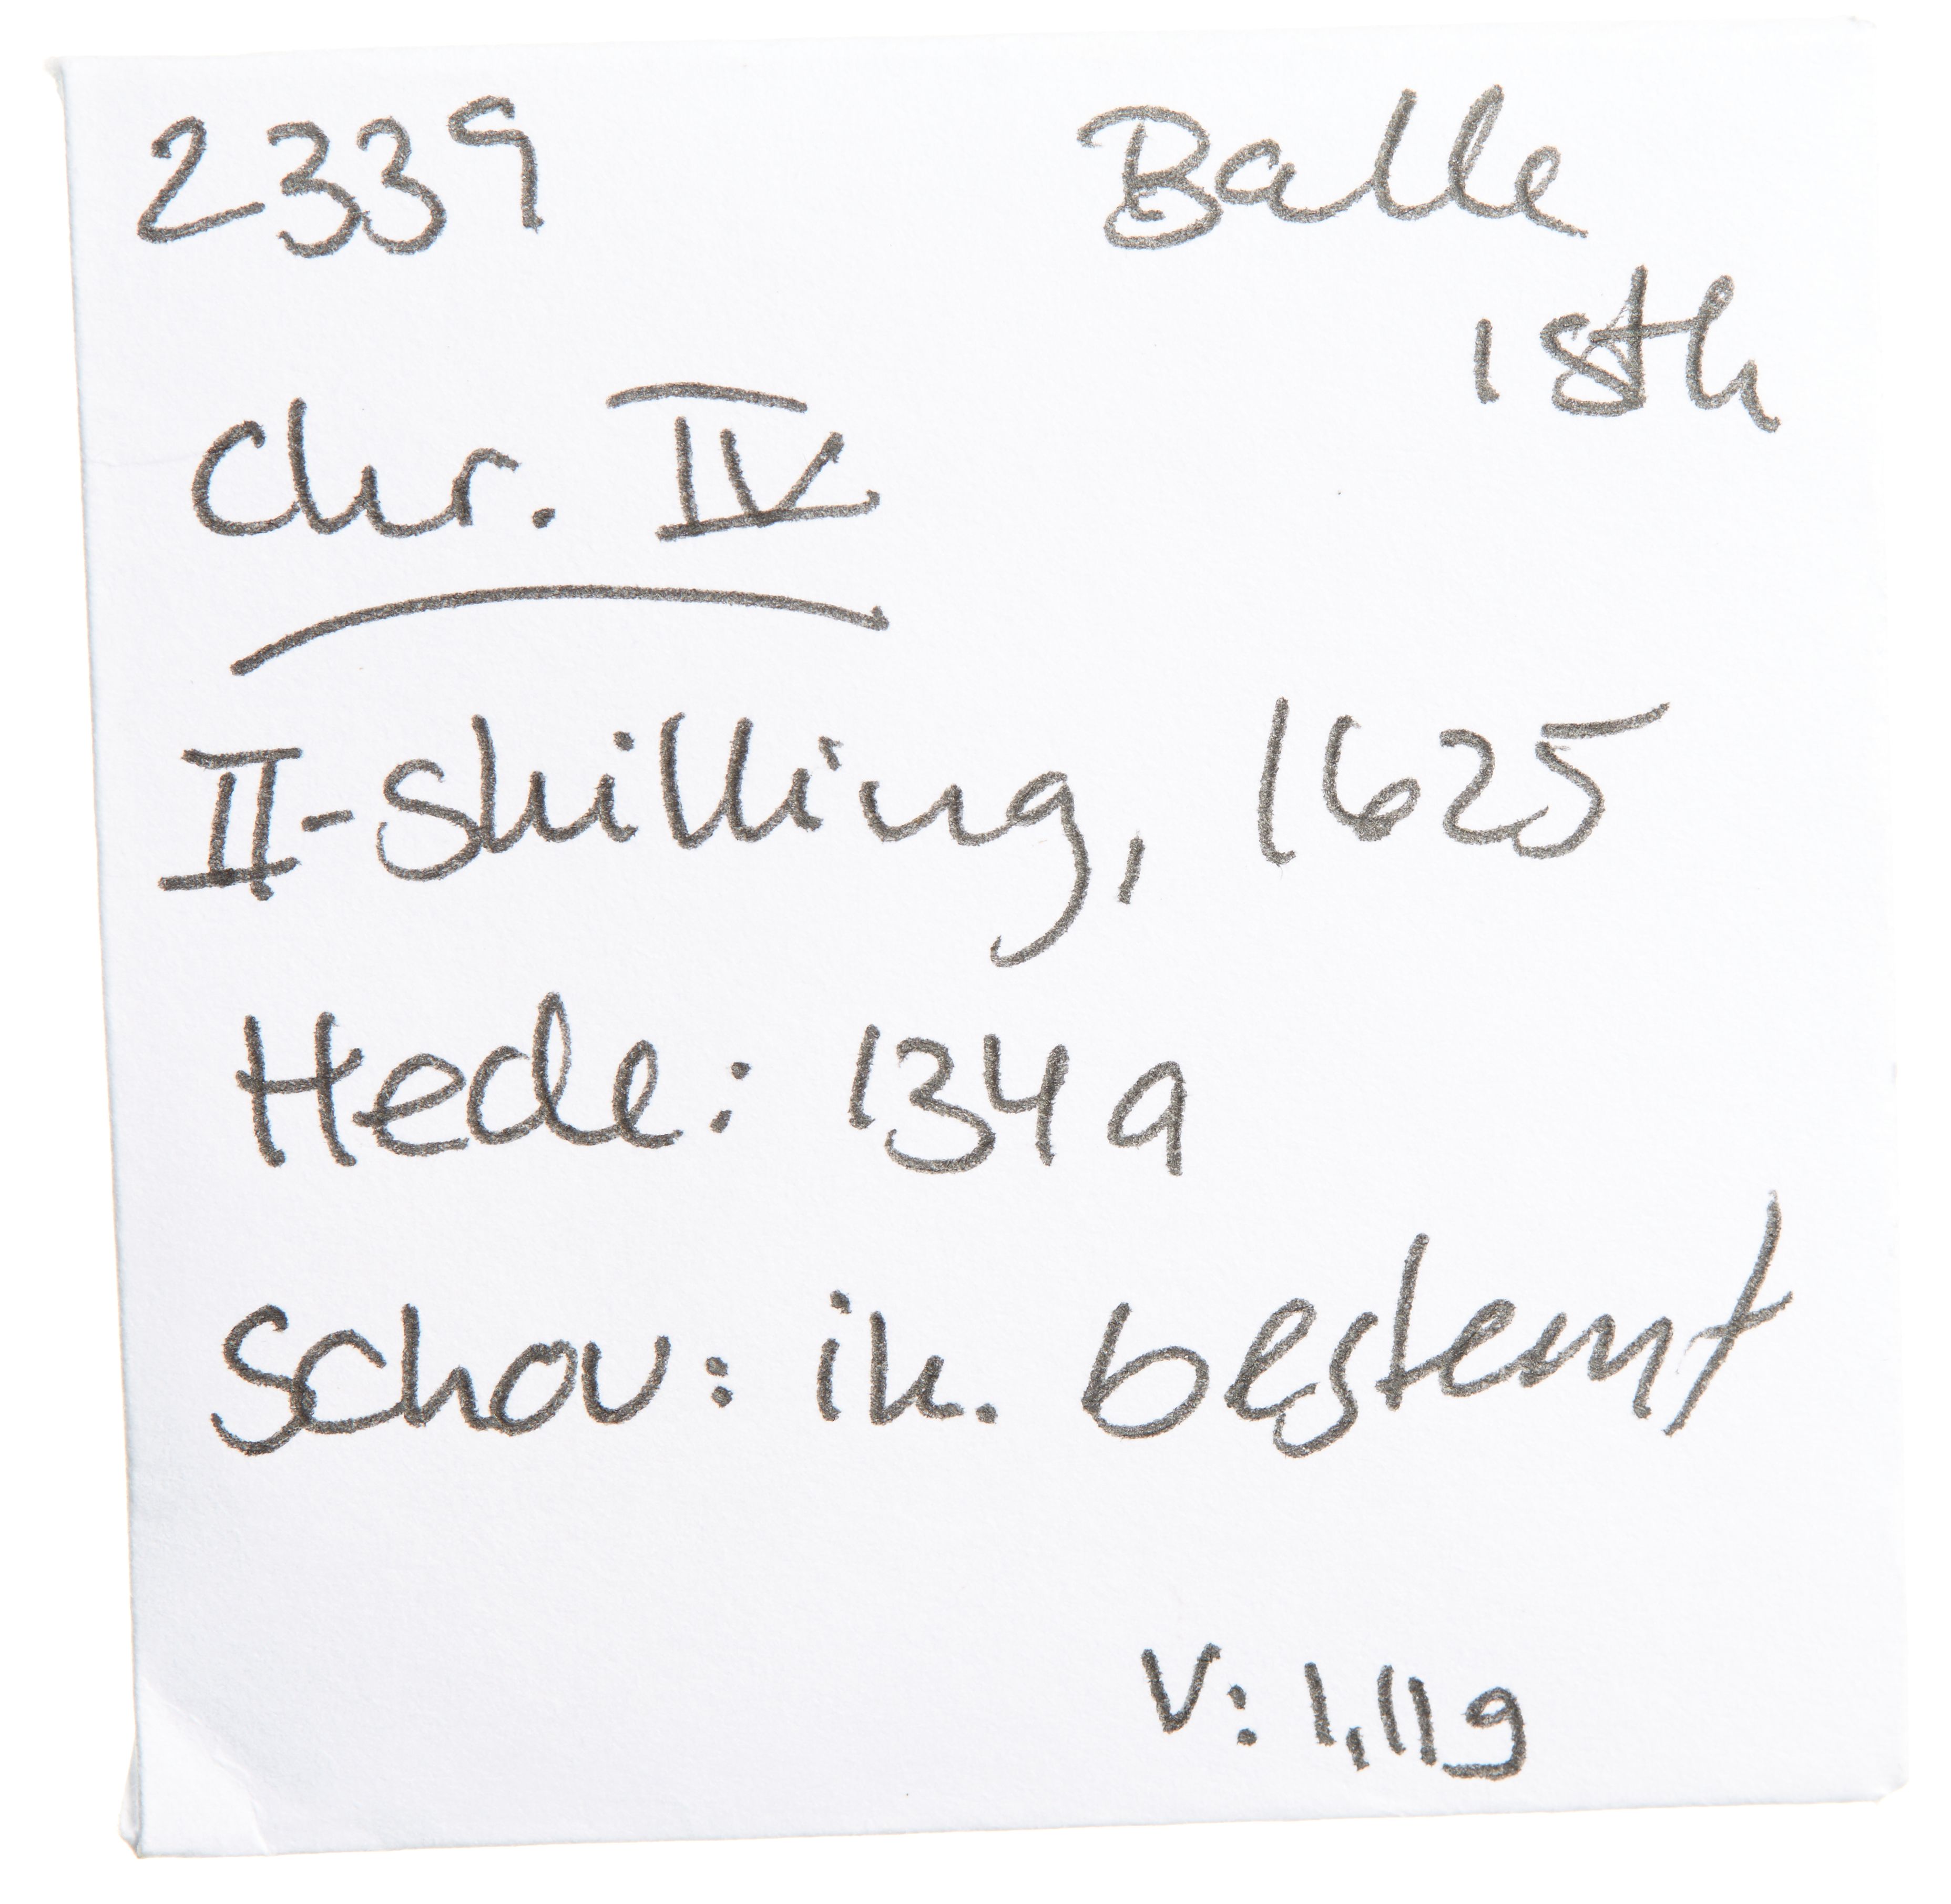 2339
Balle
1 stk
Chr. IV
II-skilling, 1625
Hede: 134 a
Schou: ik. bestemt
V: 1,11g